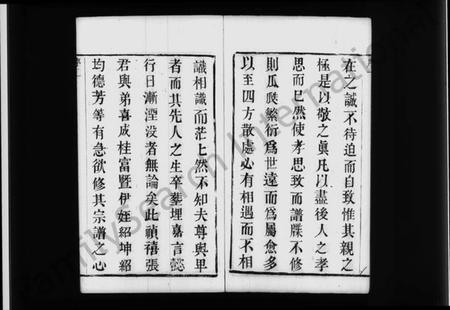 在之誠不待迫而自致惟其親之
極是以敬之真凡以盡後人之孝
思而已然使孝思致而譜牒不修
則瓜瓞繁衍為世遠而為屬愈多
以至四方散處必有相遇而不相
識相識而茫上然不知夫尊與卑
者而其先人之生卒塟埋嘉言懿
行日漸湮没者無論矣此禎禧張
君與弟喜成桂富暨伊姪紹坤紹
均德芳等有急欲修其宗譜之心
FamilySearch International